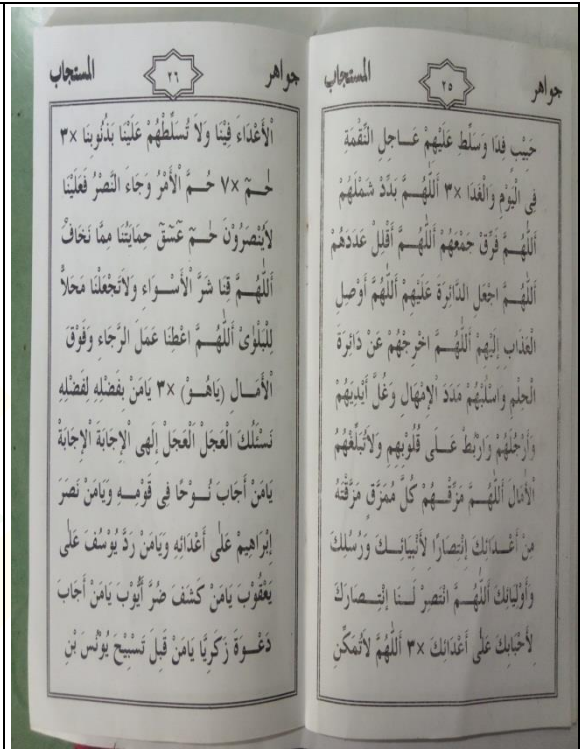 جواهر ٢٥ المستجاب
حَبِيْبِ فِدَا وَسَلِّطْ عَلَيْهِمْ عَاجِلَ النِّقْمَةِ
فِى الْيَوْمِ وَالْغَدَا ×٣ اَللّٰهُمَّ بَدِّدْ شَمْلَهُمْ
اَللّٰهُمَّ فَرِّقْ جَمْعَهُمْ اَللّٰهُمَّ أَقْلِلْ عَدَدَهُمْ
اَللّٰهُمَّ اجْعَلِ الدَّائِرَةَ عَلَيْهِمْ اَللّٰهُمَّ أَوْصِلِ
الْعَذَابَ إِلَيْهِمْ اَللّٰهُمَّ اخْرِجْهُمْ عَنْ دَائِرَةِ
الْحِلْمِ وَاسْلُبْهُمْ مَدَدَ الْإِمْهَالِ وَغُلَّ أَيْدِيَهُمْ
وَأَرْجُلَهُمْ وَارْبُطْ عَلَى قُلُوْبِهِمْ وَلَاتُبَلِّغْهُمُ
الْأَمَالَ اَللّٰهُمَّ مَزِّقْهُمْ كُلَّ مُمَزَّقٍ مَزَّقْتَهُ
مِنْ أَعْدَائِكَ إِنْتِصَارًا لِأَنْبِيَائِكَ وَرُسُلِكَ
وَأَوْلِيَائِكَ اَللّٰهُمَّ انْتَصِرْ لَنَا إِنْتِصَارَكَ
لِأَحْبَابِكَ عَلَى أَعْدَائِكَ ×٣ اَللّٰهُمَّ لَاتُمَكِّنِ
جواهر ٢٦ المستجاب
الْأَعْدَاءَ فِيْنَا وَلَا تُسَلِّطْهُمْ عَلَيْنَا بِذُنُوْبِنَا ×٣
حٰمٓ ×٧ حُمَّ الْأَمْرُ وَجَاءَ النَّصْرُ فَعَلَيْنَا
لَايُنْصَرُوْنَ حٰمٓ عٓسٓقٓ حِمَايَتُنَا مِمَّا نَخَافُ
اَللّٰهُمَّ قِنَا شَرَّ الْأَسْوَاءِ وَلَاتَجْعَلْنَا مَحَلاًّ
لِلْبَلْوٰى اَللّٰهُمَّ اعْطِنَا عَمَلَ الرَّجَاءِ وَفَوْقَ
الْأَمَالِ (يَاهُوَ) ×٣ يَامَنْ بِفَضْلِهِ لِفَضْلِهِ
نَسْئَلُكَ الْعَجَلَ الْعَجَلَ إِلٰهِى الْإِجَابَةَ الْإِجَابَةَ
يَامَنْ أَجَابَ نُوْحًا فِى قَوْمِهِ وَيَامَنْ نَصَرَ
إِبْرَاهِيْمَ عَلٰى أَعْدَائِهِ وَيَامَنْ رَدَّ يُوْسُفَ عَلٰى
يَعْقُوْبَ يَامَنْ كَشَفَ ضُرَّ أَيُّوْبَ يَامَنْ أَجَابَ
دَعْوَةَ زَكَرِيَّا يَامَنْ قَبِلَ تَسْبِيْحَ يُوْنُسَ بْنِ